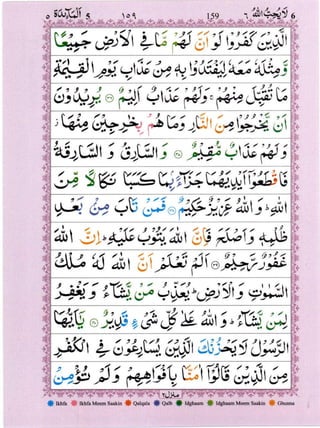 لَا يُحِبُّ اللّٰهُ ٦ 159 ١٥٩ اَلْمَآئِدَة ٥
الَّذِيْنَ كَفَرُوْا لَوْ اَنَّ لَهُمْ مَّا فِي الْاَرْضِ جَمِيْعًا
وَّمِثْلَهٗ مَعَهٗ لِيَفْتَدُوْا بِهٖ مِنْ عَذَابِ يَوْمِ الْقِيٰمَةِ
مَا تُقُبِّلَ مِنْهُمْ ۚ وَلَهُمْ عَذَابٌ اَلِيْمٌ ﴿٣٦﴾ يُرِيْدُوْنَ
اَنْ يَّخْرُجُوْا مِنَ النَّارِ وَمَا هُمْ بِخٰرِجِيْنَ مِنْهَا ز
وَلَهُمْ عَذَابٌ مُّقِيْمٌ ﴿٣٧﴾ وَالسَّارِقُ وَ السَّارِقَةُ
فَاقْطَعُوْٓا اَيْدِيَهُمَا جَزَآءًۢ بِمَا كَسَبَا نَكَالًا مِّنَ
اللّٰهِ ؕ وَ اللّٰهُ عَزِيْزٌ حَكِيْمٌ ﴿٣٨﴾ فَمَنْ تَابَ مِنْۢ بَعْدِ
ظُلْمِهٖ وَ اَصْلَحَ فَاِنَّ اللّٰهَ يَتُوْبُ عَلَيْهِ ؕ اِنَّ اللّٰهَ
غَفُوْرٌ رَّحِيْمٌ ﴿٣٩﴾ اَلَمْ تَعْلَمْ اَنَّ اللّٰهَ لَهٗ مُلْكُ
السَّمٰوٰتِ وَ الْاَرْضِ ؕ يُعَذِّبُ مَنْ يَّشَآءُ وَ يَغْفِرُ
لِمَنْ يَّشَآءُ ؕ وَ اللّٰهُ عَلٰى كُلِّ شَيْءٍ قَدِيْرٌ ﴿٤٠﴾ يٰٓاَيُّهَا
الرَّسُوْلُ لَا يَحْزُنْكَ الَّذِيْنَ يُسَارِعُوْنَ فِي الْكُفْرِ
مِنَ الَّذِيْنَ قَالُوْٓا اٰمَنَّا بِاَفْوَاهِهِمْ وَ لَمْ تُؤْمِنْ
منزل ٢
Ikhfa Ikhfa Meem Saakin Qalqala Qalb Idghaam Idghaam Meem Saakin Ghunna